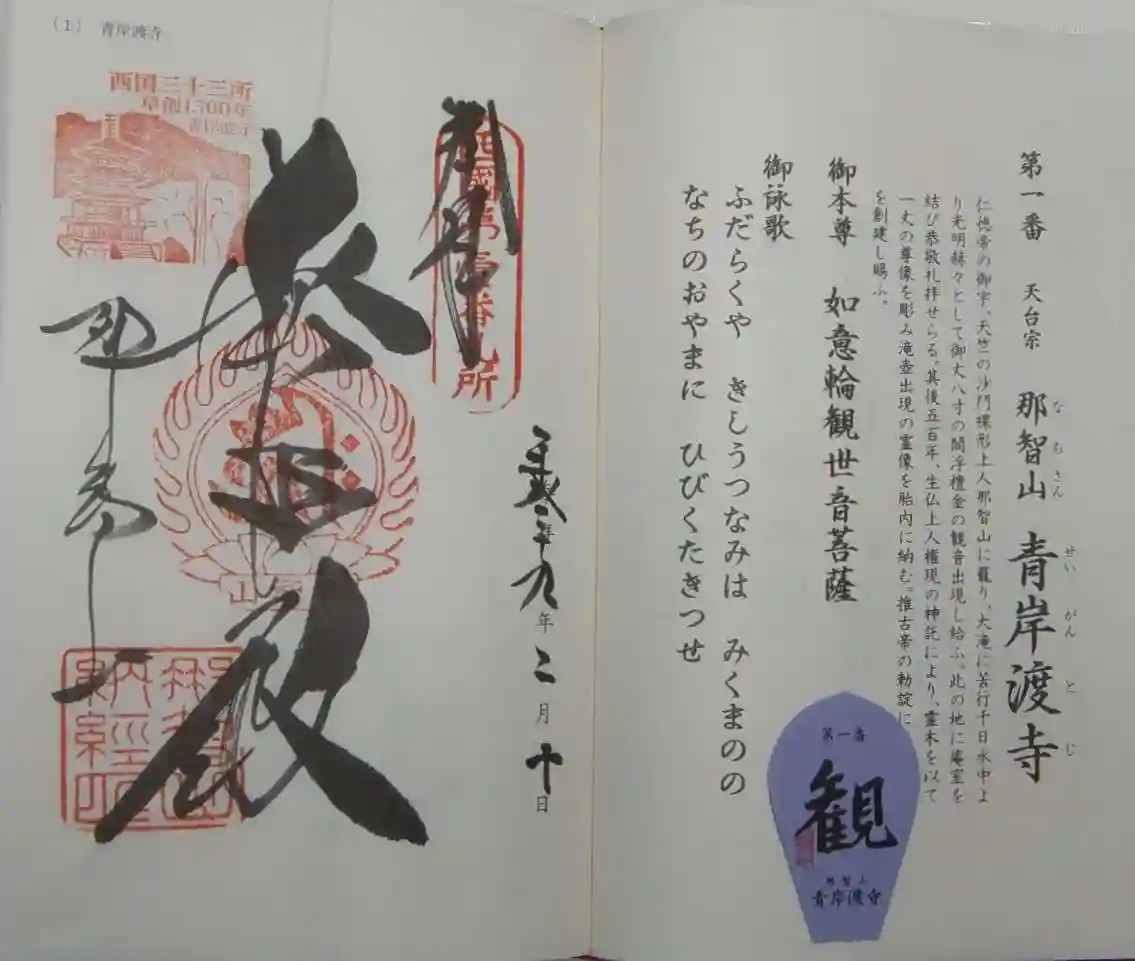 第一番 天台宗 那智山 青岸渡寺
なちさん せいがんとじ
仁徳帝の御宇、天竺の沙門裸形上人那智山に籠り、大滝に苦行千日水中よ
り光明赫々として御丈八寸の閻浮檀金の観音出現し給ふ。此の地に庵室を
結び恭敬礼拝せらる。其後五百年、生仏上人権現の神託により、霊木を以て
一丈の尊像を彫み滝壺出現の霊像を胎内に納む。推古帝の勅諚に
を創建し賜ふ。
御本尊 如意輪観世音菩薩
御詠歌
ふだらくや きしうつなみは みくまのの
なちのおやまに ひびくたきつせ
第一番
観
那智山
青岸渡寺
(1) 青岸渡寺
西国三十三所
草創1300年
青岸渡寺
奉拝
西國第壹番札所
二十九年二月十日
那智山